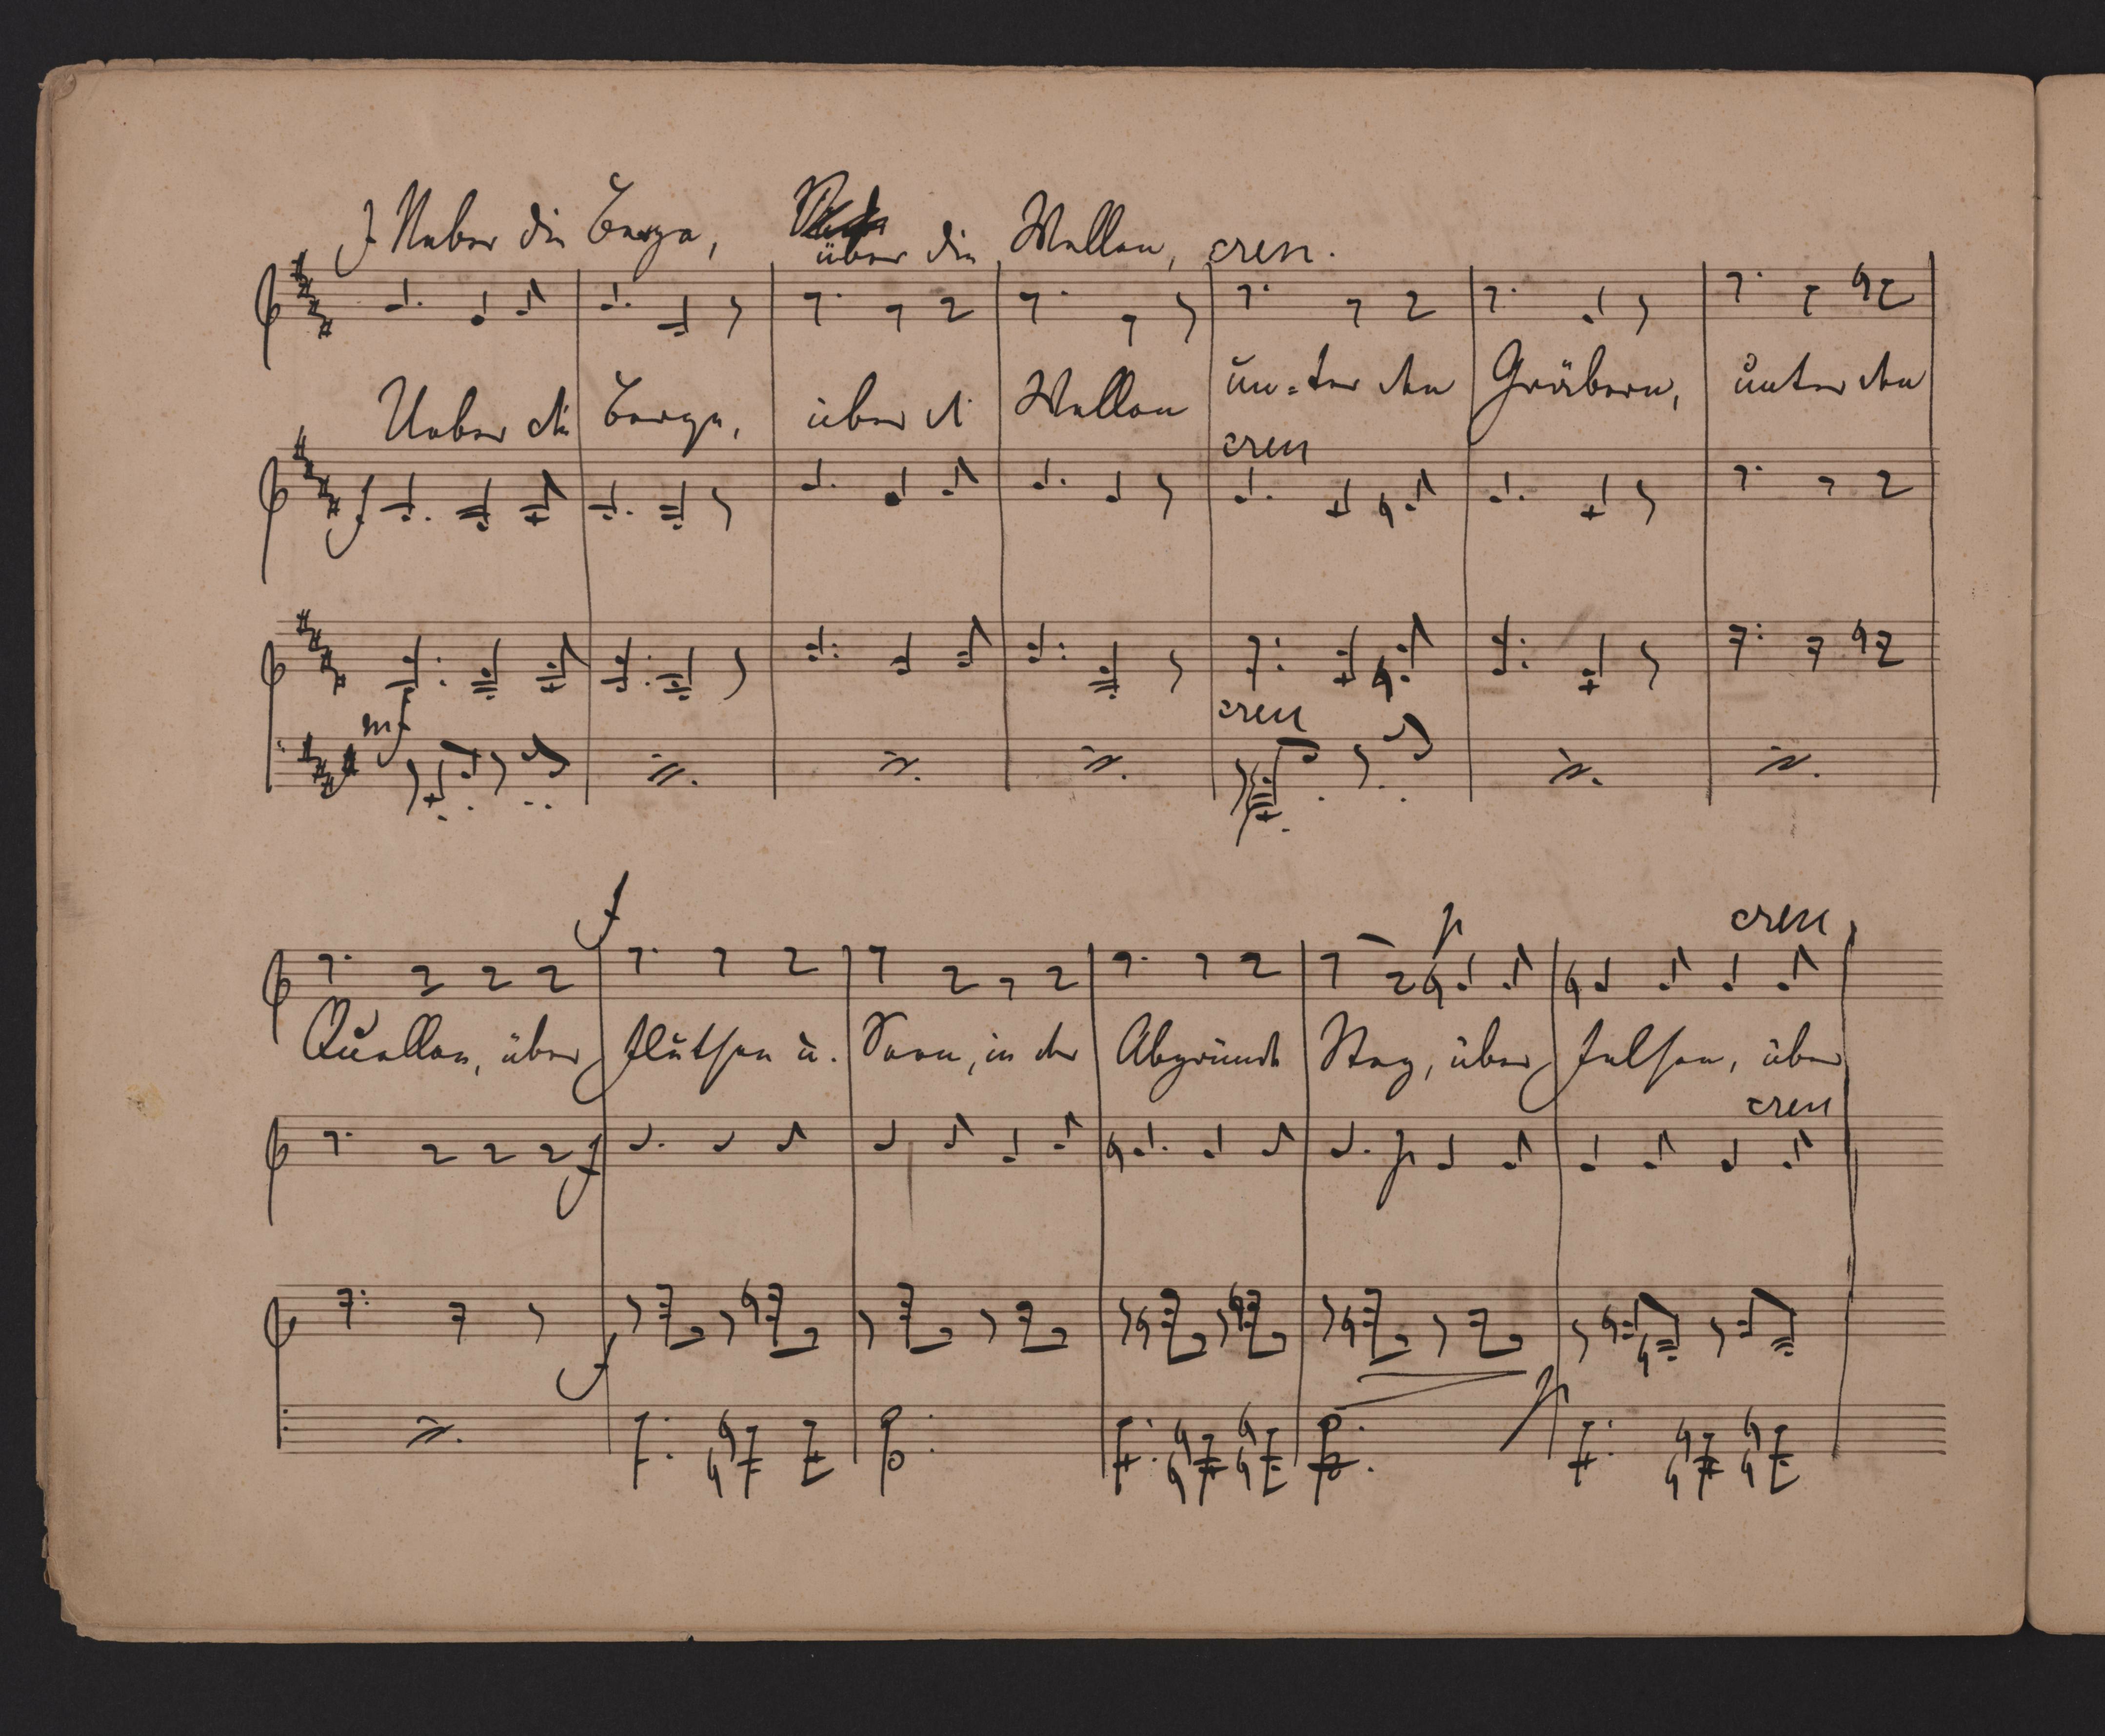 f Ueber die Berge, über die Wellen, cresc.
Ueber die Berge, über d. Wellen un=ter den Gräbern, unter den
f cresc
mf cresc
f p cresc
Quellen, über Fluthen u. Seen, in der Abgründe Steg, über Felsen, über
f p cresc
f p